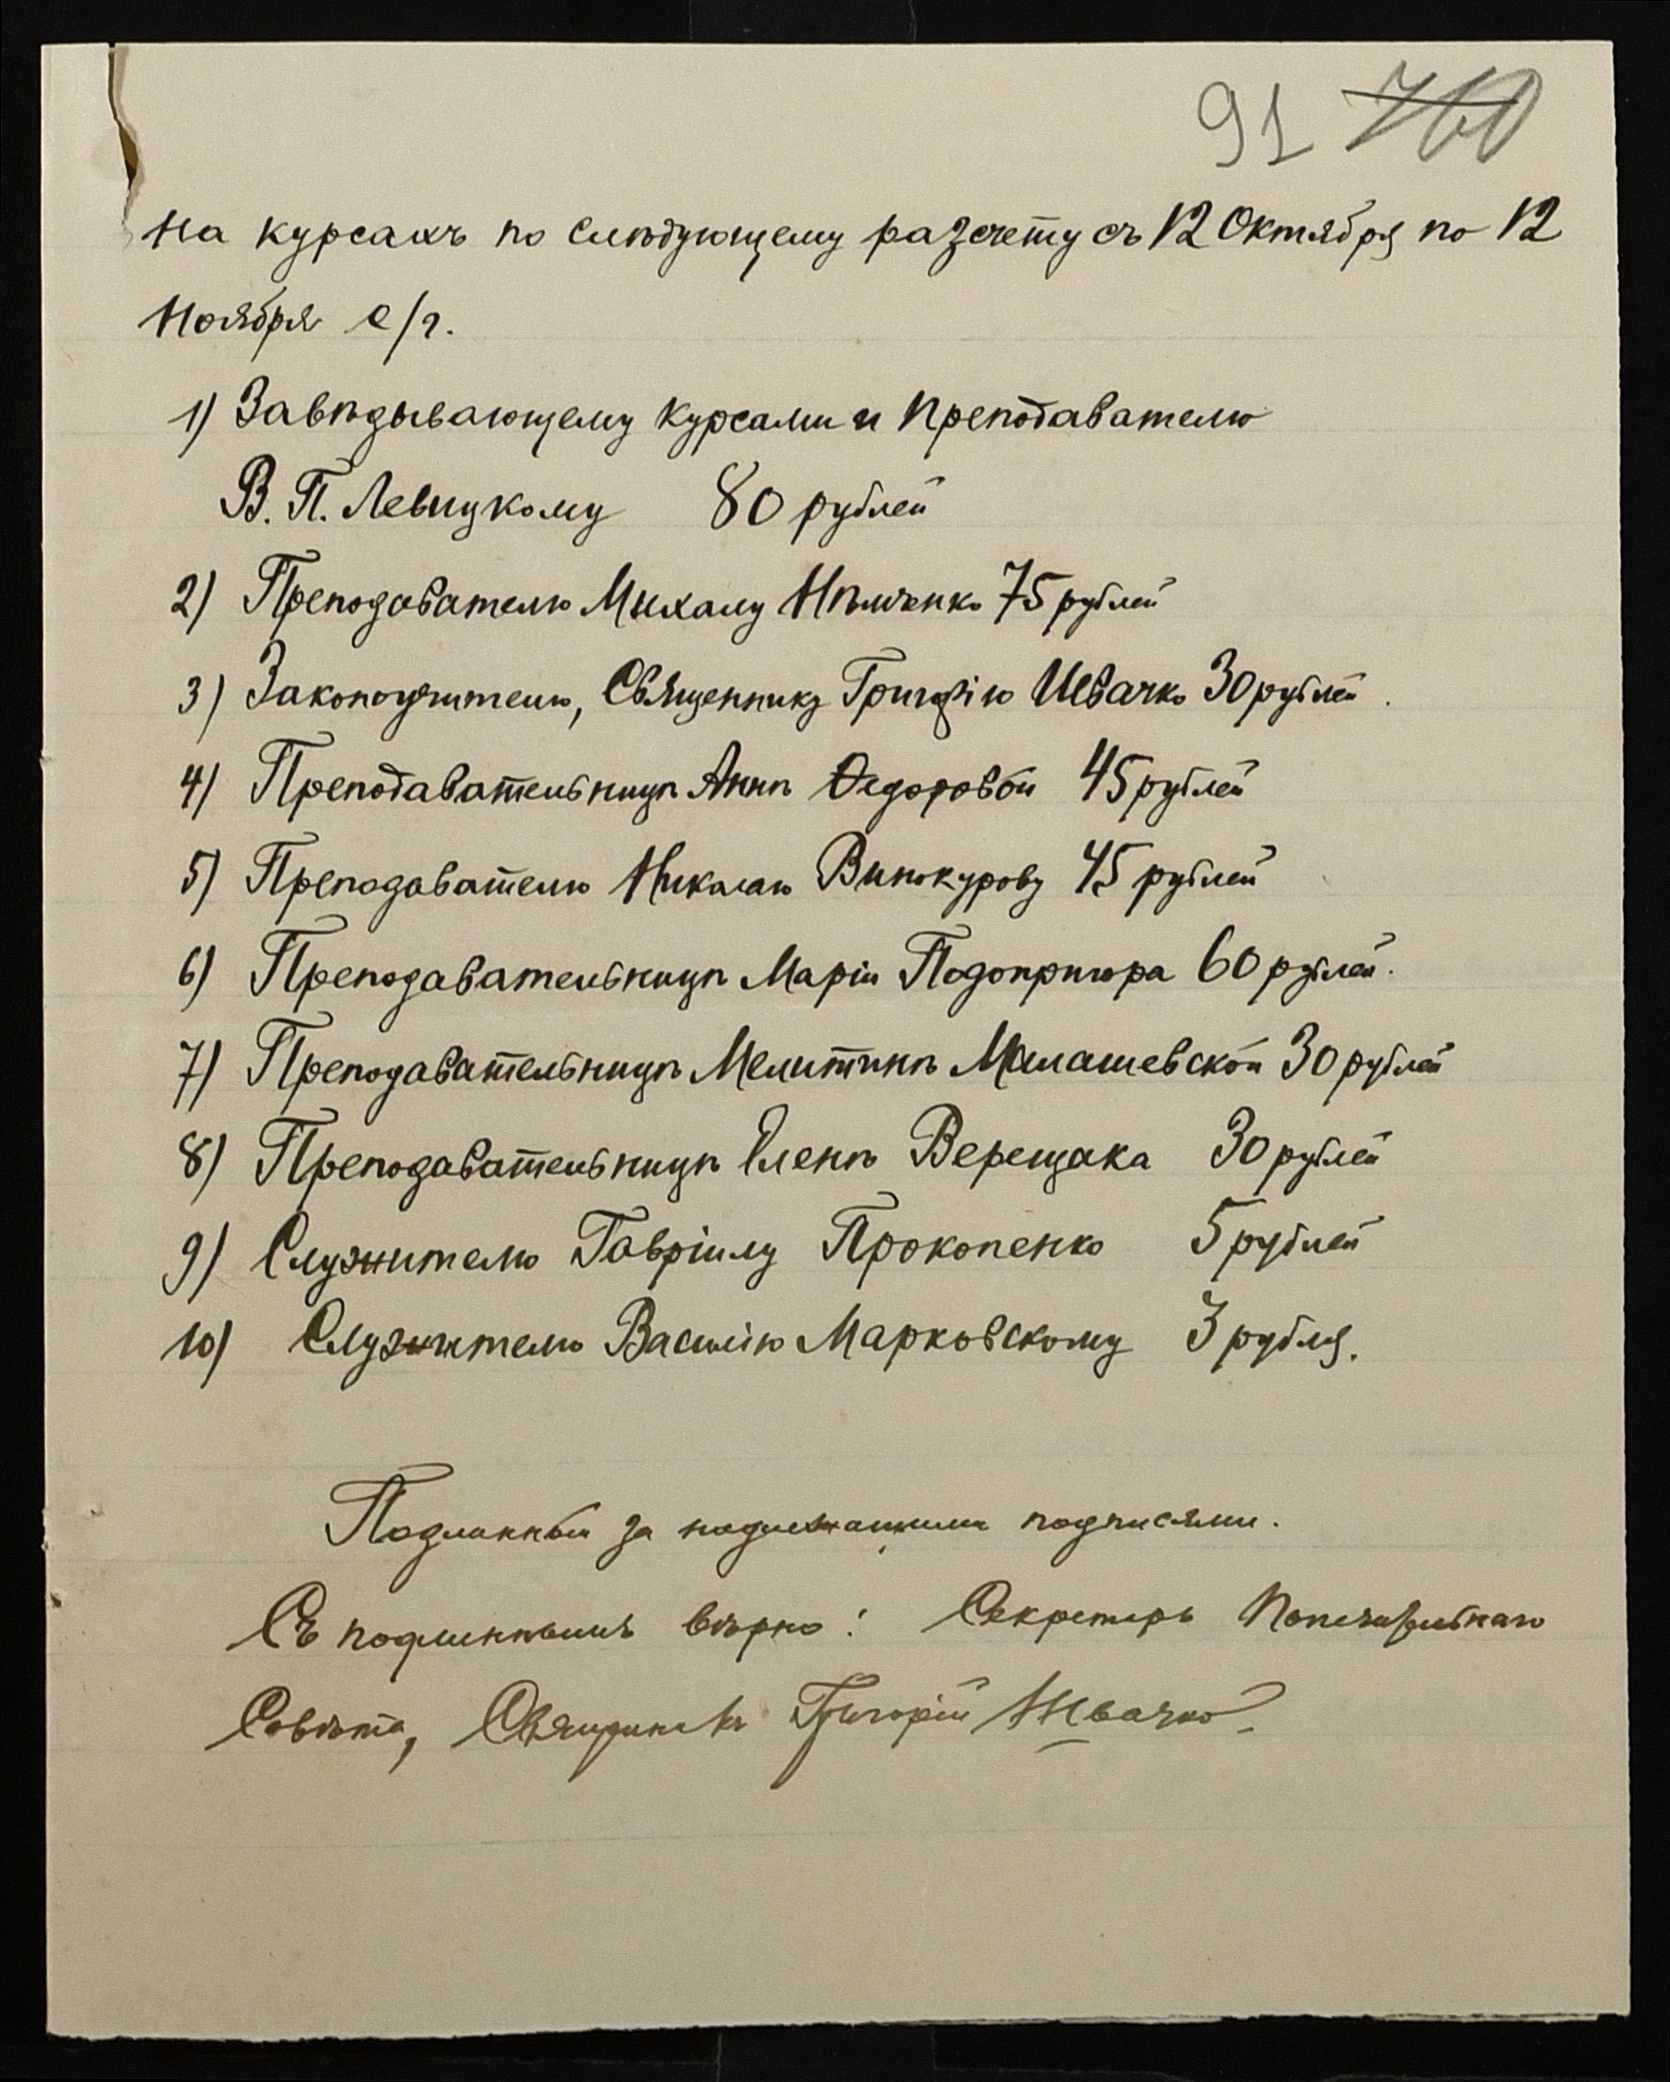 91 760
на курсахъ по слѣдующему разсчету съ 12 Октября по 12
Ноября с/г.
1) Завѣдывающему курсами и преподавателю
В. П. Левицкому 80 рублей
2) Преподавателю Михалу Нѣмченко 75 рублей
3) Законоучителю, Священнику Григорію Швачко 30 рублей.
4) Преподавательницѣ Аннѣ Ѳедоровой 45 рублей
5) Преподавателю Николаю Винокурову 45 рублей
6) Преподавательницѣ Маріи Подопригора 60 рублей.
7) Преподавательницѣ Мелитинѣ Малашевской 30 рублей
8) Преподавательницѣ Еленѣ Верещака 30 рублей
9) Служителю Гавріилу Прокопенко 5 рублей
10) Служителю Василію Марковскому 3 рубля.
Подлинный за надлежащими подписями.
Съ подлиннымъ вѣрно: Секретарь Попечительнаго
Совѣта, Священникъ Григорій Швачко.